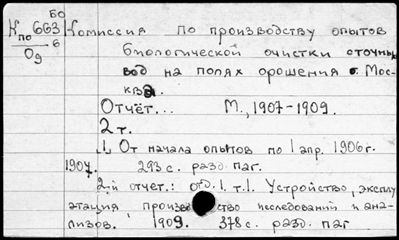 БО
К по 663 Комиссия по производству опытов
О9 6 биологической очистки сточных
вод на полях орошения г. Мос-
ква.
Отчёт... М., 1907-1909.
2 т.
1. От начала опытов по 1 апр. 1906 г.
1907. 293 с. разд. паг.
2-й отчет.: отд. 1. т. 1. Устройство, эксплу
атация, производство исследований и ана-
лизов. 1909. 378 с. разд. паг